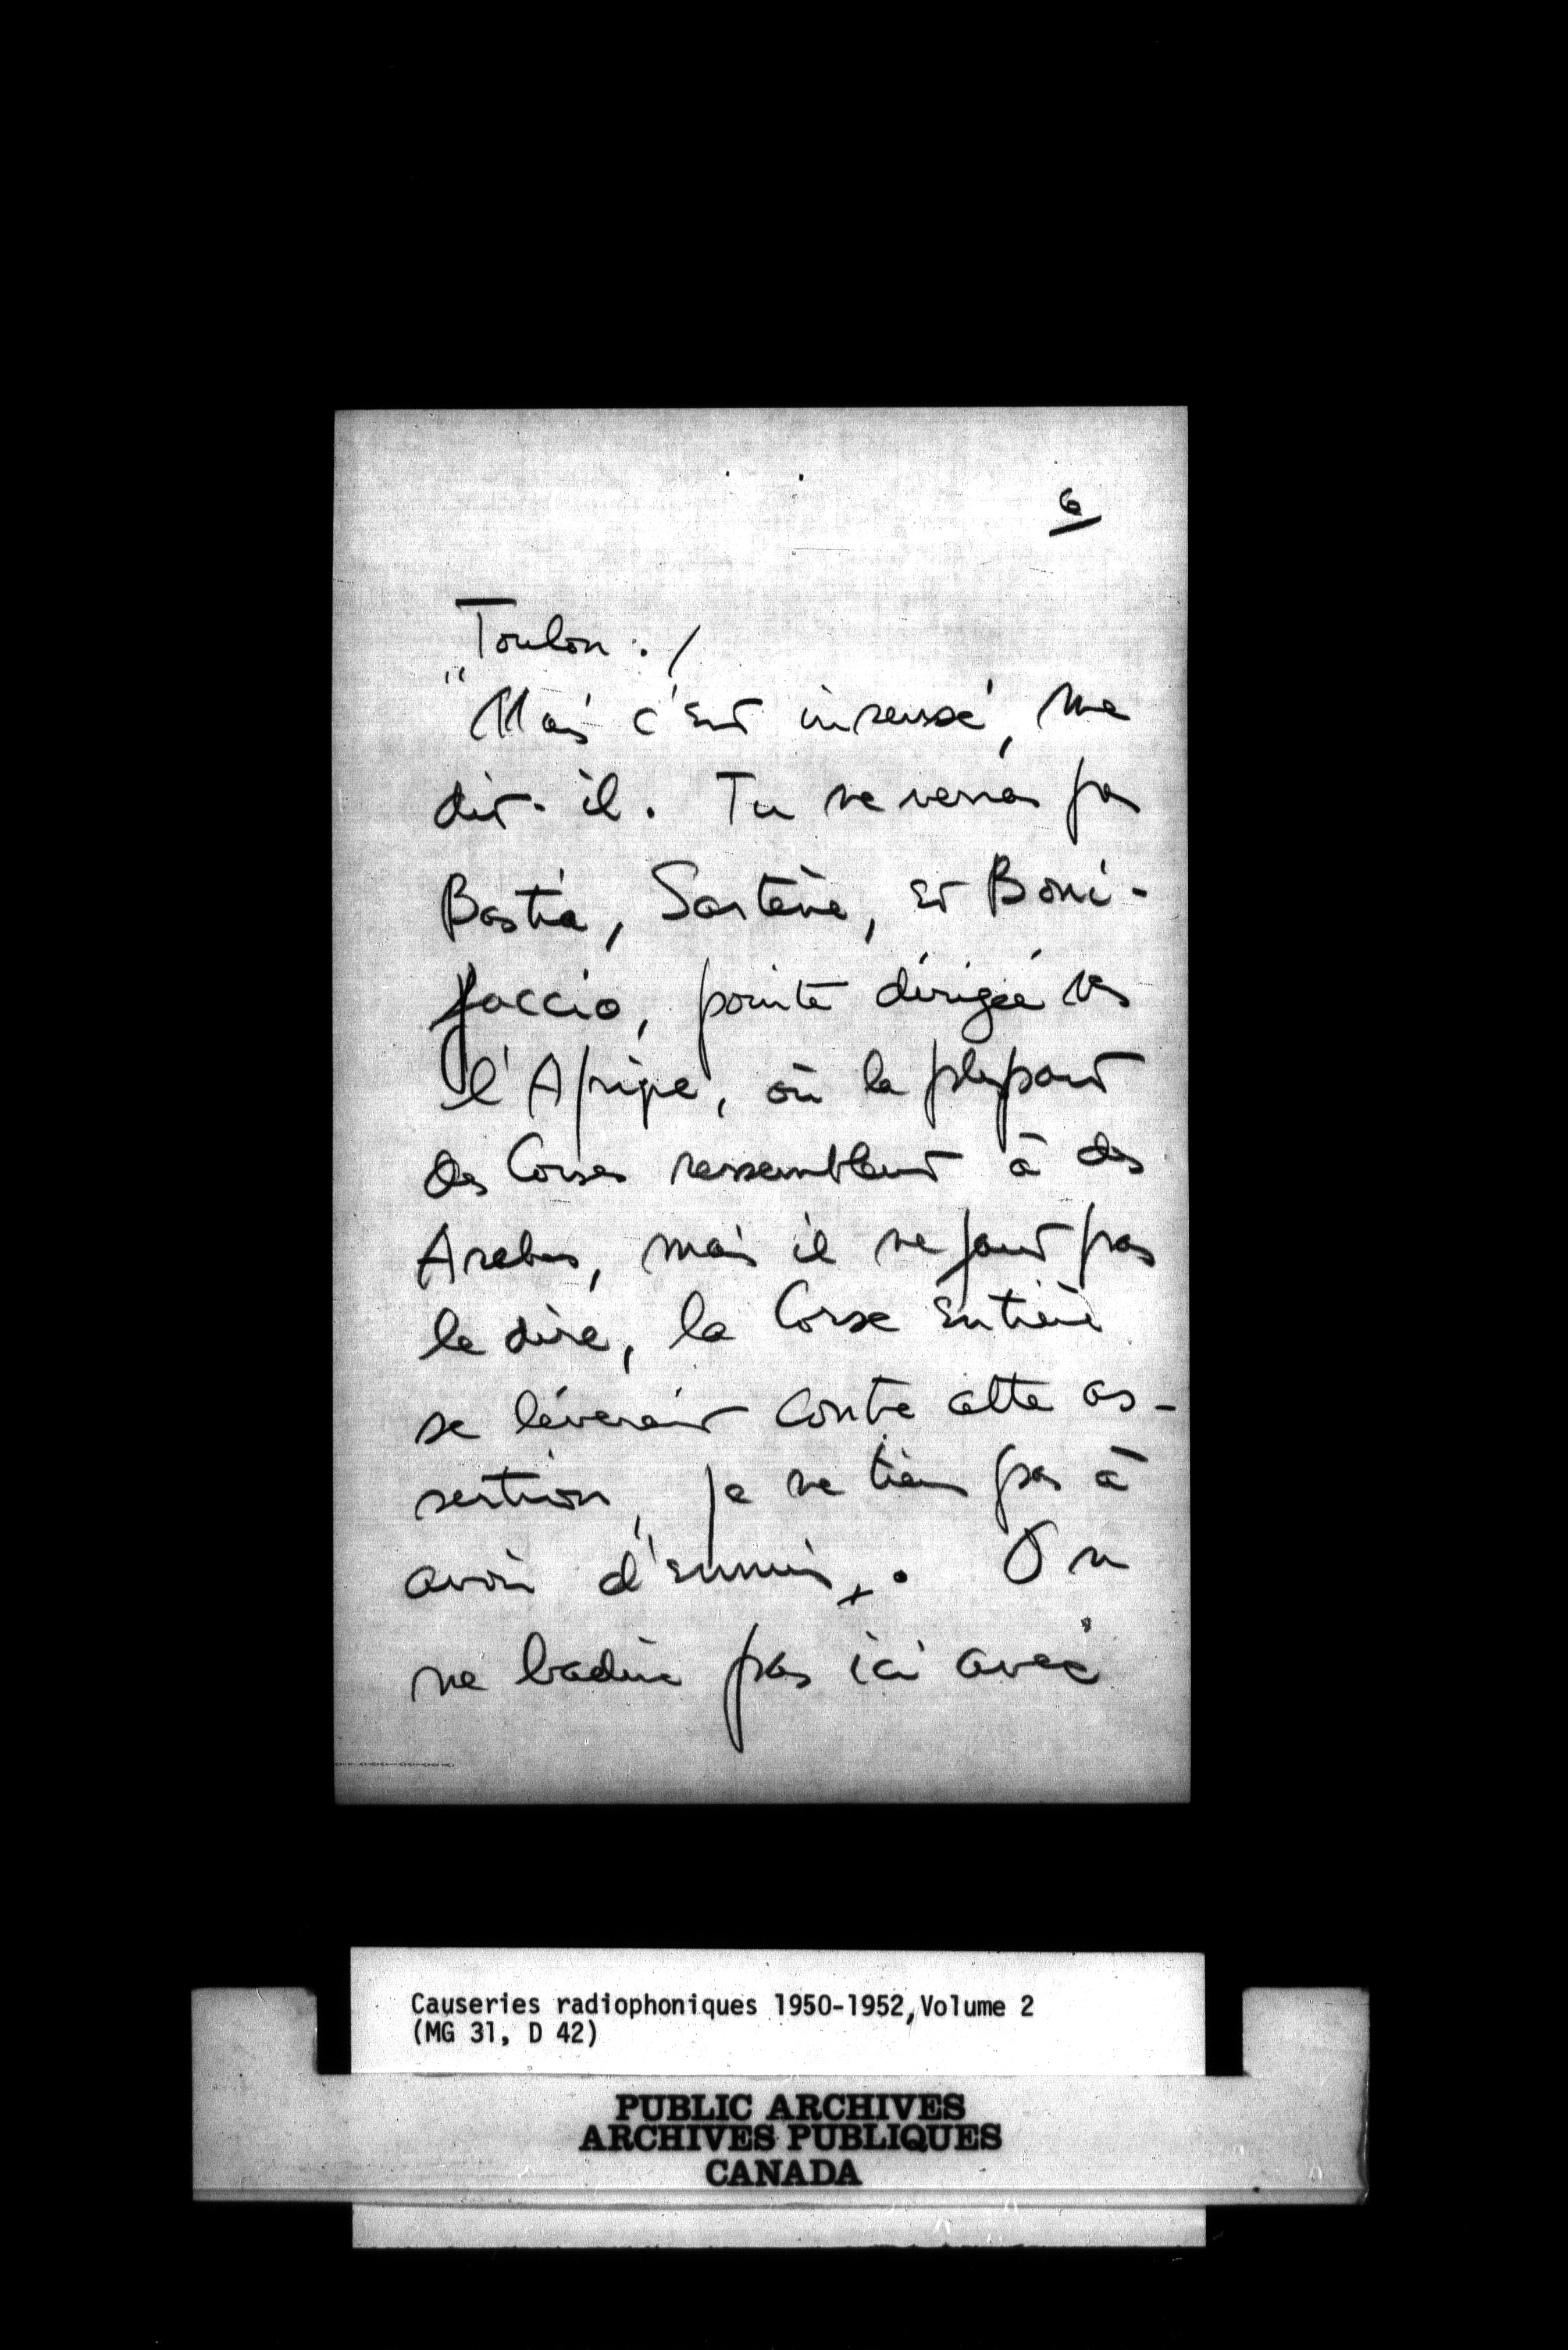 6
Toulon. /
"Mais c'est insensé, me
dit-il. Tu ne verras pas
Bastia, Sartène, et Boni-
faccio, pointe dirigée vers
l'Afrique, où la plupart
des Corses ressemblent à des
Arabes, mais il ne faut pas
le dire, la Corse entière
se lèverait contre cette as-
sertion, je ne tiens pas à
avoir d'ennuis". On
ne badine pas ici avec
Causeries radiophoniques 1950-1952, Volume 2
(MG 31, D 42)
PUBLIC ARCHIVES
ARCHIVES PUBLIQUES
CANADA